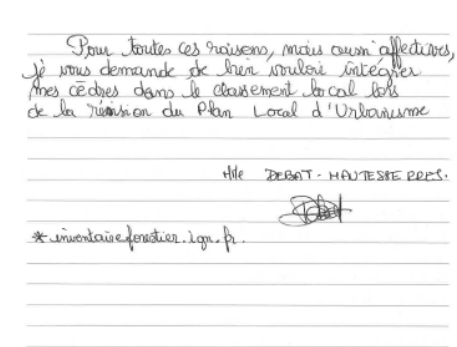 Pour toutes ces raisons, mais aussi affectives,
je vous demande de bien vouloir intégrer
mes cèdres dans le classement local lors
de la révision du Plan Local d'Urbanisme
Mle DEBAT-HAUTESSERRES.
* inventaireforestier.ign.fr.